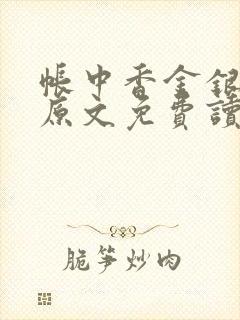 帳中香金銀
原文免費讀
脆笋炒肉